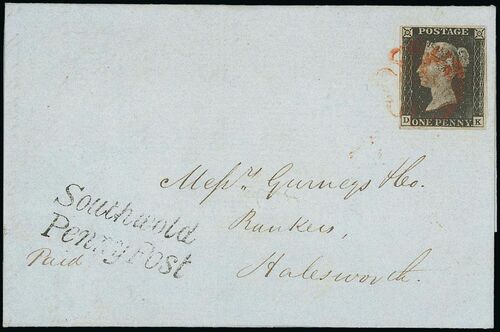 POSTAGE
D ONE PENNY K
Messrs. Gurneys & Co.
Bankers,
Halesworth.
Southwold
Penny Post
Paid